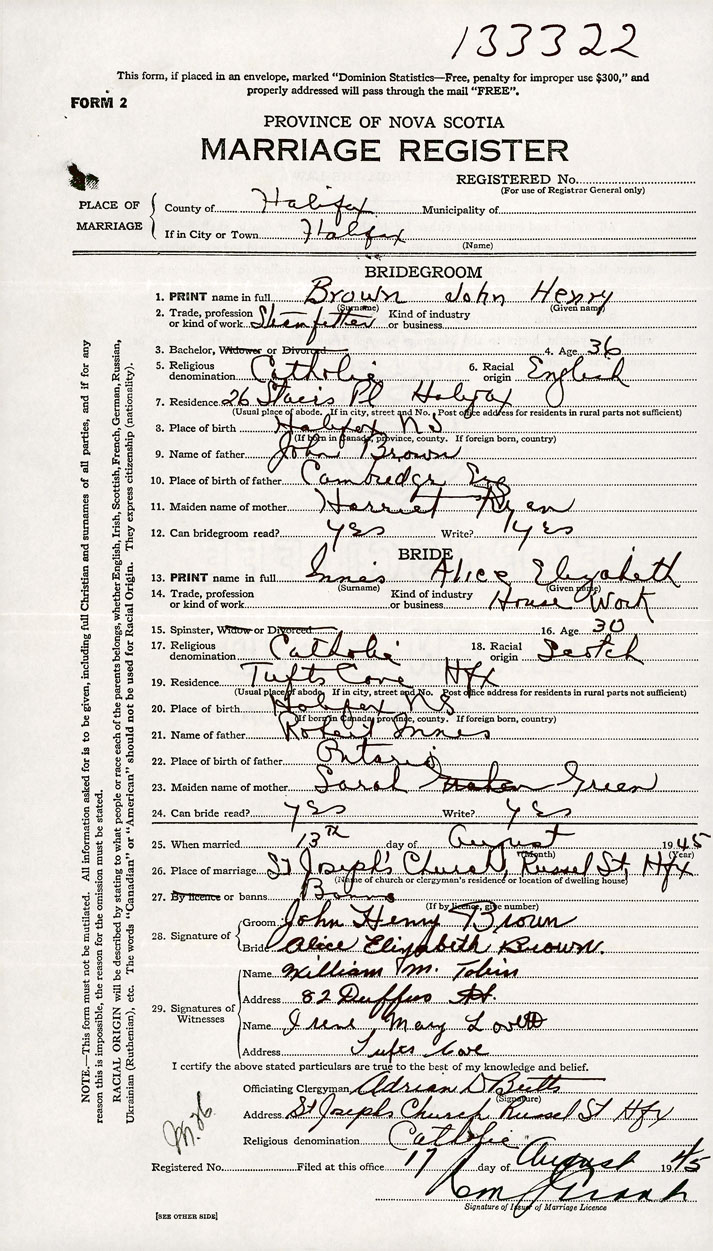 133322
This form, if placed in an envelope, marked "Dominion Statistics—Free, penalty for improper use $300," and
properly addressed will pass through the mail "FREE".
FORM 2
PROVINCE OF NOVA SCOTIA
MARRIAGE REGISTER
REGISTERED No.
(For use of Registrar General only)
PLACE OF MARRIAGE
County of Halifax Municipality of
If in City or Town Halifax
(Name)
BRIDEGROOM
1. PRINT name in full Brown John Henry
(Surname) (Given name)
2. Trade, profession or kind of work Steamfitter Kind of industry or business
3. Bachelor, Widower or Divorced 4. Age 36
5. Religious denomination Catholic 6. Racial origin English
7. Residence 26 Stairs Pl Halifax
(Usual place of abode. If in city, street and No. Post office address for residents in rural parts not sufficient)
8. Place of birth Halifax NS
(If born in Canada, province, county. If foreign born, country)
9. Name of father John Brown
10. Place of birth of father Cambredge Eng
11. Maiden name of mother Harriet Ryan
12. Can bridegroom read? yes Write? yes
BRIDE
13. PRINT name in full Innes Alice Elizabeth
(Surname) (Given name)
14. Trade, profession or kind of work Kind of industry or business House Work
15. Spinster, Widow or Divorced 16. Age 30
17. Religious denomination Catholic 18. Racial origin Scotch
19. Residence Tufts Cove Hfx
(Usual place of abode. If in city, street and No. Post office address for residents in rural parts not sufficient)
20. Place of birth Halifax NS
(If born in Canada, province, county. If foreign born, country)
21. Name of father Robert Innes
22. Place of birth of father Ontario
23. Maiden name of mother Sarah Green
24. Can bride read? yes Write? yes
25. When married 13TH day of August 1945
(Month) (Year)
26. Place of marriage St Joseph's Church, Russel St, Hfx
(Name of church or clergyman's residence or location of dwelling house)
27. By licence or banns Banns
(If by licence, give number)
28. Signature of
Groom John Henry Brown
Bride Alice Elizabeth Brown.
29. Signatures of Witnesses
Name William M. Tobin
Address 82 Duffus St.
Name Irene Mary Lovett
Address Tufts Cove
I certify the above stated particulars are true to the best of my knowledge and belief.
Officiating Clergyman Adrian D Butts
(Signature)
Address St Josephs Church Russel St Hfx
Religious denomination Catholic
Registered No. Filed at this office 17 day of August 1945
Signature of Issuer of Marriage Licence
[SEE OTHER SIDE]
NOTE.—This form must not be mutilated. All information asked for is to be given, including full Christian and surnames of all parties, and if for any
reason this is impossible, the reason for the omission must be stated.
RACIAL ORIGIN will be described by stating to what people or race each of the parents belongs, whether English, Irish, Scottish, French, German, Russian,
Ukrainian (Ruthenian), etc. The words "Canadian" or "American" should not be used for Racial Origin. They express citizenship (nationality).